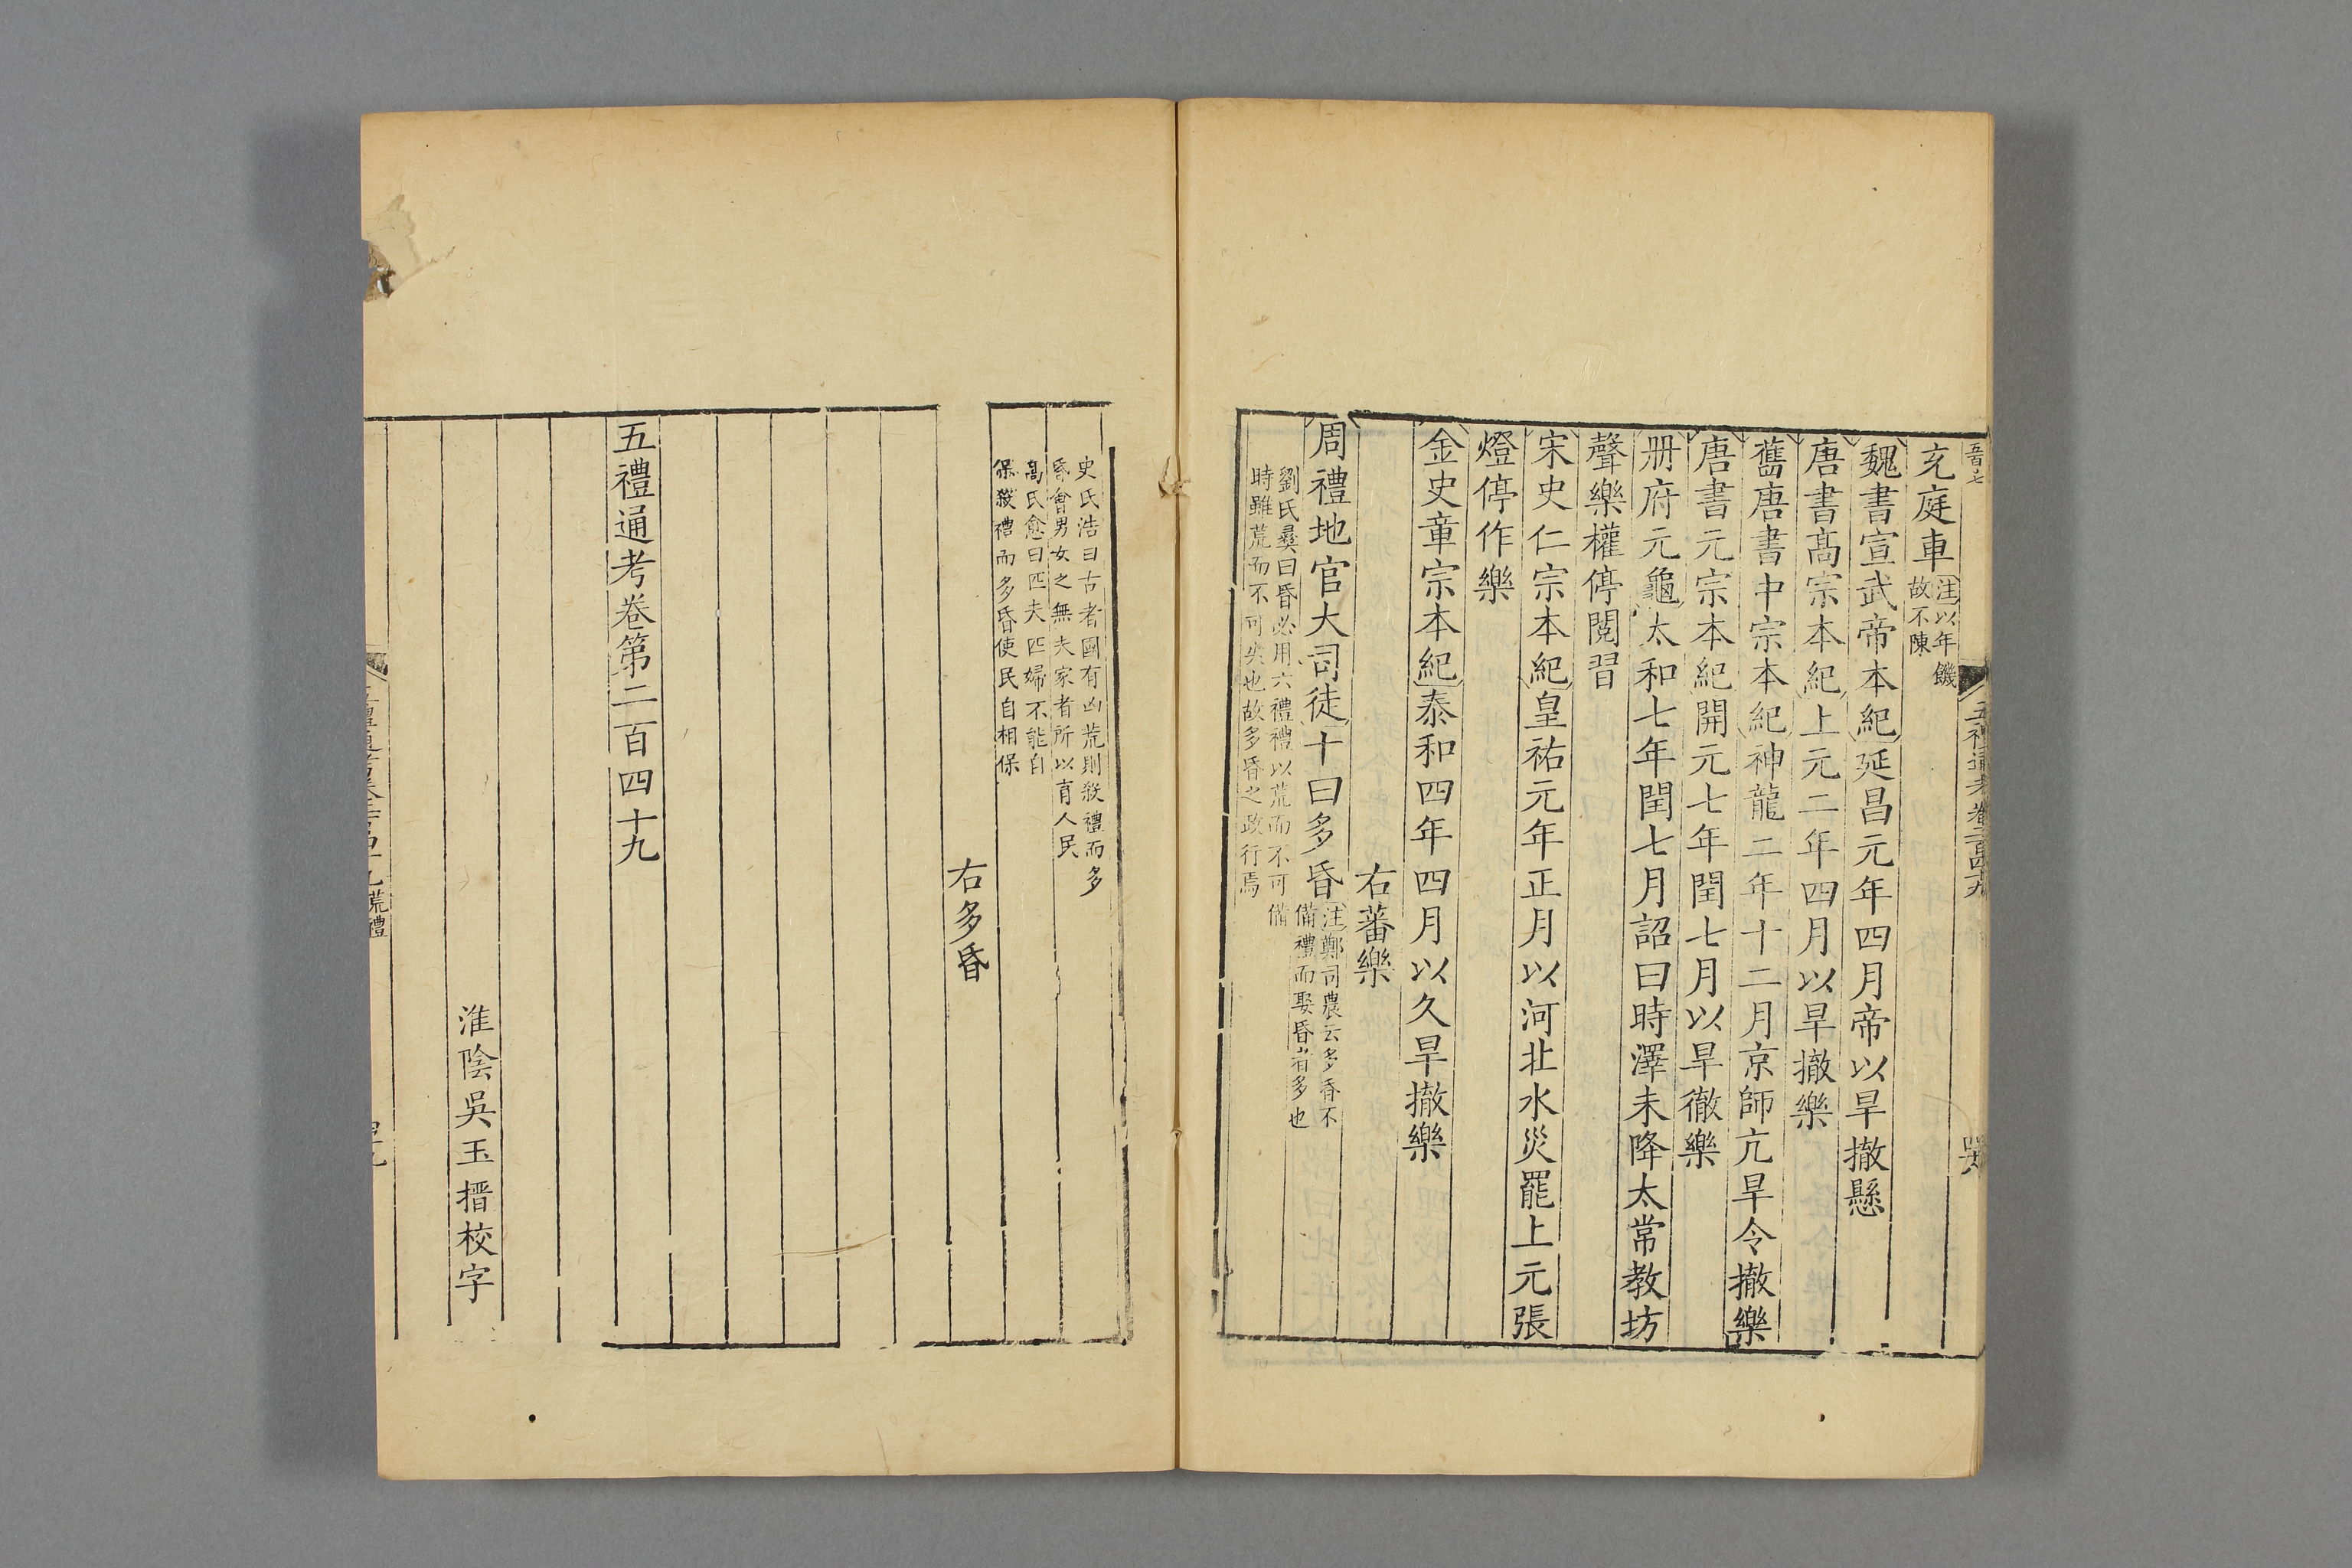 五禮通考卷二百四十九
充庭車注以年饑
故不陳
魏書宣武帝本紀延昌元年四月帝以旱撤懸
唐書高宗本紀上元二年四月以旱撤樂
舊唐書中宗本紀神龍二年十二月京師亢旱令撤樂
唐書元宗本紀開元七年閏七月以旱徹樂
册府元龜太和七年閏七月詔曰時澤未降太常教坊
聲樂權停閱習
宋史仁宗本紀皇祐元年正月以河北水災罷上元張
燈停作樂
金史章宗本紀泰和四年四月以久旱撤樂
右蕃樂
周禮地官大司徒十曰多昏注鄭司農云多昏不
備禮而娶昏者多也
劉氏彝曰昏必用六禮禮以荒而不可備
時雖荒而不可失也故多昏之政行焉
史氏浩曰古者國有凶荒則殺禮而多
昏會男女之無夫家者所以育人民
高氏愈曰匹夫匹婦不能自
保殺禮而多昏使民自相保
右多昏
五禮通考卷第二百四十九
淮陰吳玉搢校字
荒禮